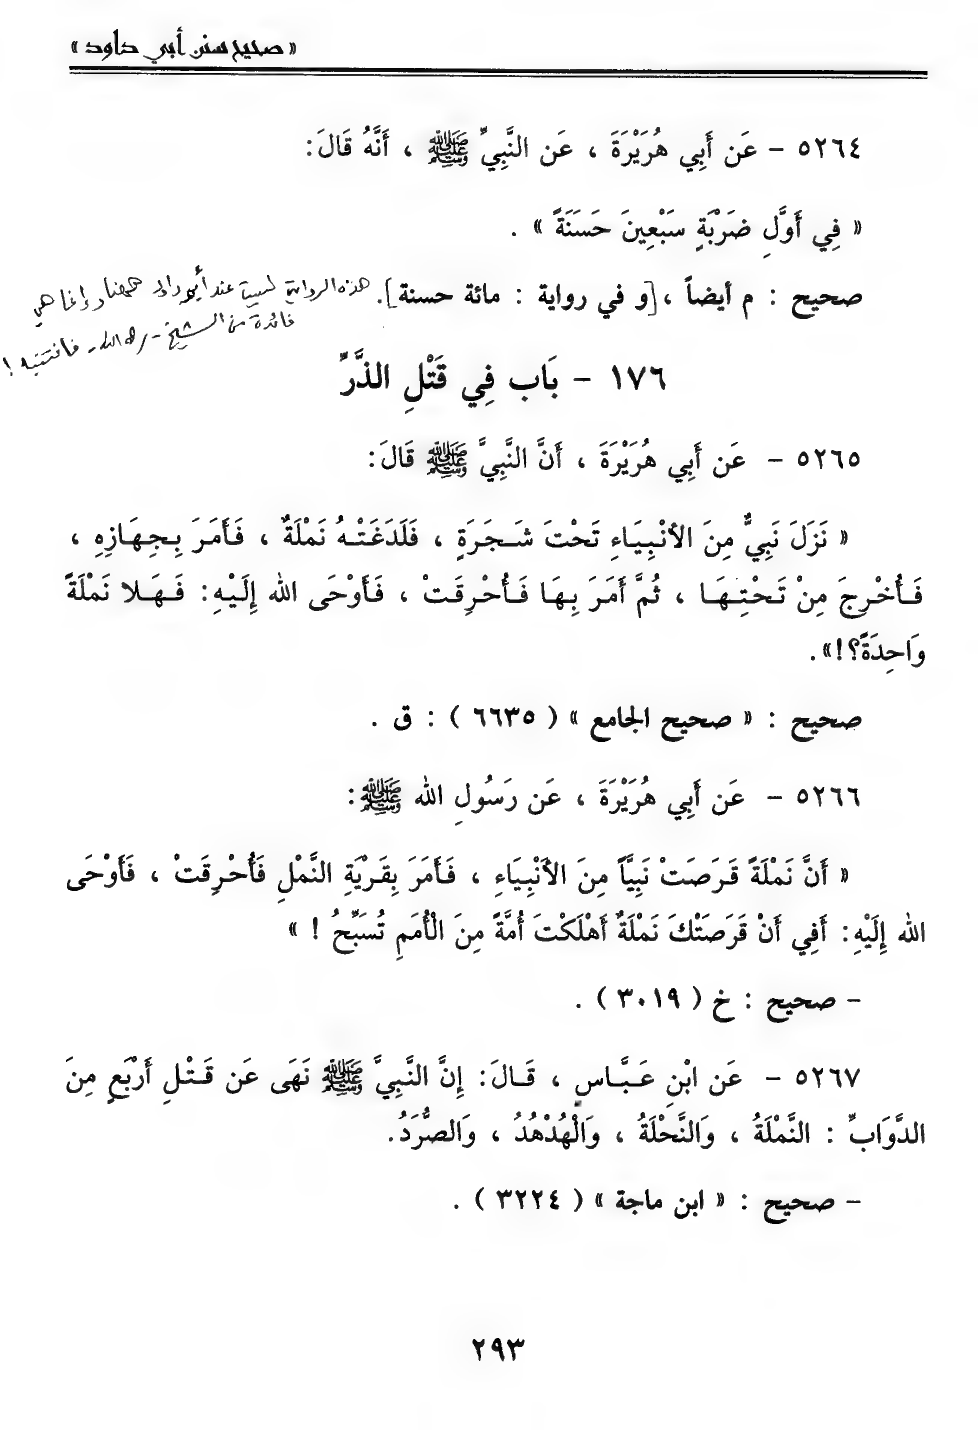 « صحيح سنن أبي داود »
٥٢٦٤ – عَن أَبِي هُرَيْرَةَ ، عَن النَّبِيِّ ﷺ ، أَنَّهُ قَالَ:
« فِي أَوَّلِ ضَرْبَةٍ سَبْعِينَ حَسَنَةً » .
صحيح : م أيضاً ، [و في رواية : مائة حسنة]. هذه الرواية ليست عند أبي داود ههنا وإنما هي
فائدة من الشيخ - رحمه الله - فانتبه !
١٧٦ – بَاب فِي قَتْلِ الذَّرِّ
٥٢٦٥ – عَن أَبِي هُرَيْرَةَ ، أَنَّ النَّبِيَّ ﷺ قَالَ:
« نَزَلَ نَبِيٌّ مِنَ الأنْبِيَاءِ تَحْتَ شَجَرَةٍ ، فَلَدَغَتْهُ نَمْلَةٌ ، فَأَمَرَ بِجِهَازِهِ ،
فَأُخْرِجَ مِنْ تَحْتِهَا ، ثُمَّ أَمَرَ بِهَا فَأُحْرِقَتْ ، فَأَوْحَى الله إِلَيْهِ: فَهَلا نَمْلَةً
وَاحِدَةً؟!».
صحيح : « صحيح الجامع » ( ٦٦٣٥ ) : ق .
٥٢٦٦ – عَن أَبِي هُرَيْرَةَ ، عَن رَسُولِ الله ﷺ:
« أَنَّ نَمْلَةً قَرَصَتْ نَبِيَّاً مِنَ الأَنْبِيَاءِ ، فَأَمَرَ بِقَرْيَةِ النَّمْلِ فَأُحْرِقَتْ ، فَأَوْحَى
الله إِلَيْهِ: أَفِي أَنْ قَرَصَتْكَ نَمْلَةٌ أَهْلَكْتَ أُمَّةً مِنَ الْأُمَمِ تُسَبِّحُ ! »
– صحيح : خ ( ٣٠١٩ ) .
٥٢٦٧ – عَن ابْنِ عَبَّاسٍ ، قَالَ: إِنَّ النَّبِيَّ ﷺ نَهَى عَن قَتْلِ أَرْبَعٍ مِنَ
الدَّوَابِّ : النَّمْلَةُ ، وَالنَّحْلَةُ ، وَالْهُدْهُدُ ، وَالصُّرَدُ.
– صحيح : « ابن ماجة » ( ٣٢٢٤ ) .
٢٩٣